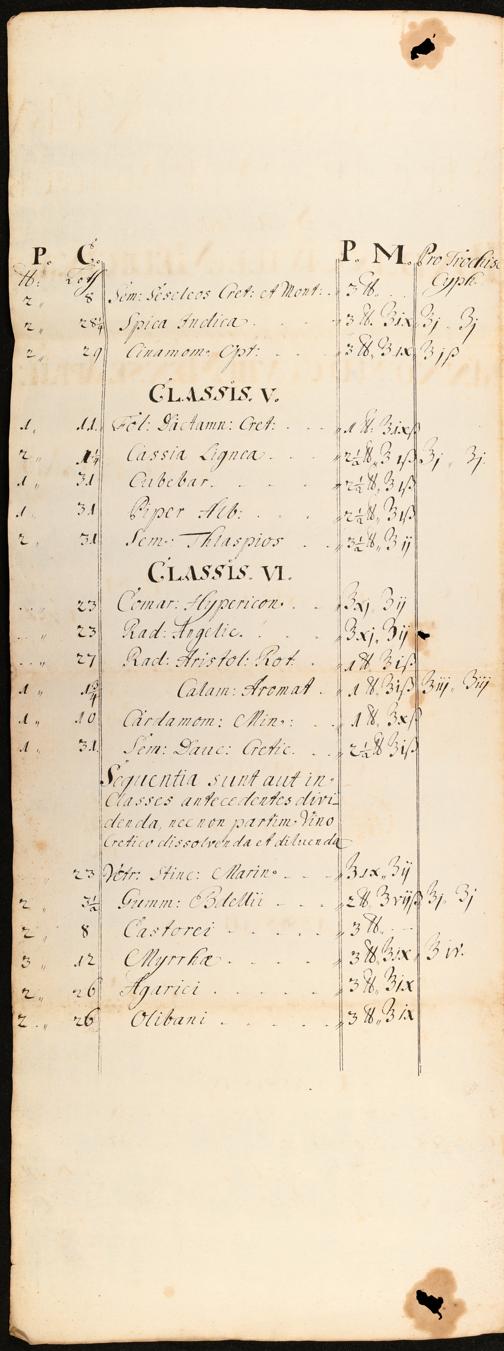 P. C. P. M. Pro Trochisc
℔: Lot Cyph
2 " 8 Sem: Seseleos Cret: et Mont: " 3 ℔.
2 " 28¼ Spica Indica " 3 ℔. ʒix ʒj . ʒj
2 " 29 Cinamom. Opt: " 3 ℔, ʒix ʒjß
CLASSIS. V.
1 " 11 Fol: Dictamn: Cret: " 1 ℔: ʒixß
2 " 1¼ Cassia Lignea " 2½ ℔, ʒiß ʒj . ʒj.
1 " 31 Cubebar. " 2½ ℔, ʒiß
1 " 31 Piper Alb: " 2½ ℔, ʒiß
2 " 31 Sem: Thlaspios " 3½ ℔ " ʒij
CLASSIS. VI.
" 23 Comar: Hypericon. ʒxj ʒij
" 23 Rad: Angelic. ʒxj. ʒij
" 27 Rad: Aristol: Rot " 1 ℔ ʒiß
1 " 1¾ Calam: Aromat " 1 ℔. ʒiß ʒiij . ʒiij
1 " 10 Cardamom: Min: " 1 ℔ ʒxß
1 " 31 Sem: Dauc: Cretic. " 2½ ℔ ʒiß
Sequentia sunt aut in
Classes antecedentes divi-
denda, nec non partim Vino
Cretico dissolvenda et diluenda
23 Vetr: Stinc: Marin. ʒix " ʒij
2 " 3½ Gumm: Bdellii " 2 ℔ ʒviiß ʒj . ʒj
2 " 8 Castorei " 3 ℔.
3 " 12 Myrrhæ " 3 ℔ ʒix ʒ iv.
2 " 26 Agarici " 3 ℔ ʒix
2 " 26 Olibani " 3 ℔, ʒix